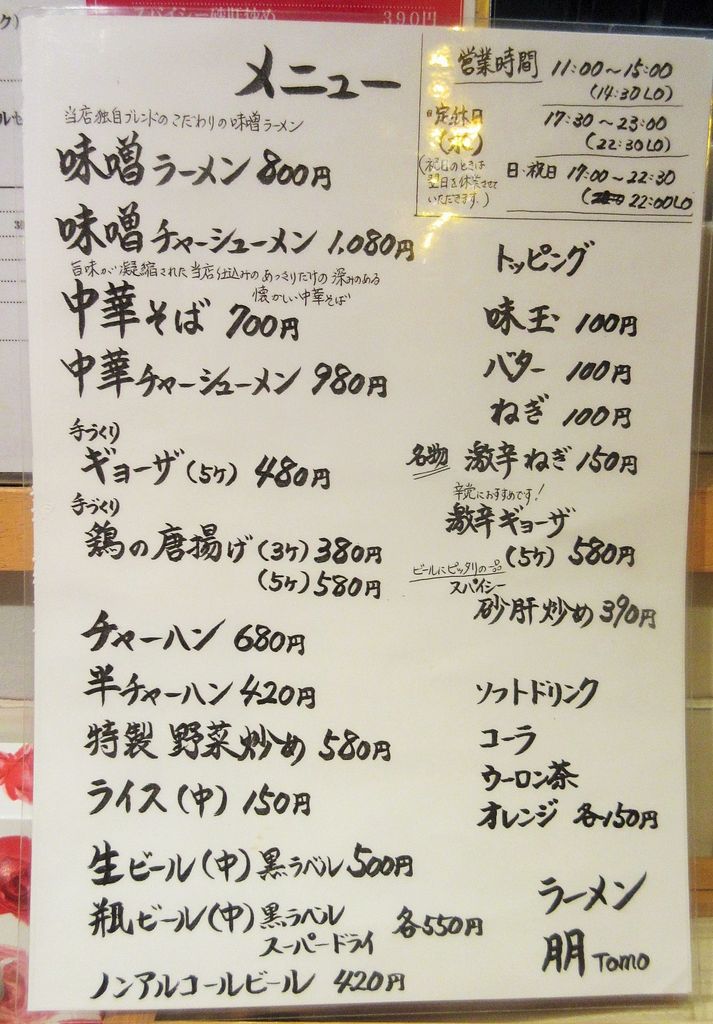 390円
メニュー
営業時間 11:00〜15:00
(14:30LO)
定休日
(水)
17:30〜23:00
(22:30LO)
(祝日のときは
翌日を休業させて
いただきます。)
日・祝日 17:00〜22:30
(22:00LO
当店独自ブレンドのこだわりの味噌ラーメン
味噌ラーメン 800円
味噌チャーシューメン 1,080円
旨味が凝縮された当店仕込みのあっさりだけの深みのある
懐かしい中華そば
中華そば 700円
中華チャーシューメン 980円
手づくり
ギョーザ(5ケ) 480円
手づくり
鶏の唐揚げ(3ケ) 380円
(5ケ) 580円
チャーハン 680円
半チャーハン 420円
特製 野菜炒め 580円
ライス(中) 150円
生ビール(中)黒ラベル 500円
瓶ビール(中)黒ラベル
スーパードライ 各550円
ノンアルコールビール 420円
トッピング
味玉 100円
バター 100円
ねぎ 100円
名物 激辛ねぎ 150円
辛党におすすめです!
激辛ギョーザ
(5ケ) 580円
ビールにピッタリの一品
スパイシー
砂肝炒め 390円
ソフトドリンク
コーラ
ウーロン茶
オレンジ 各150円
ラーメン
朋 Tomo